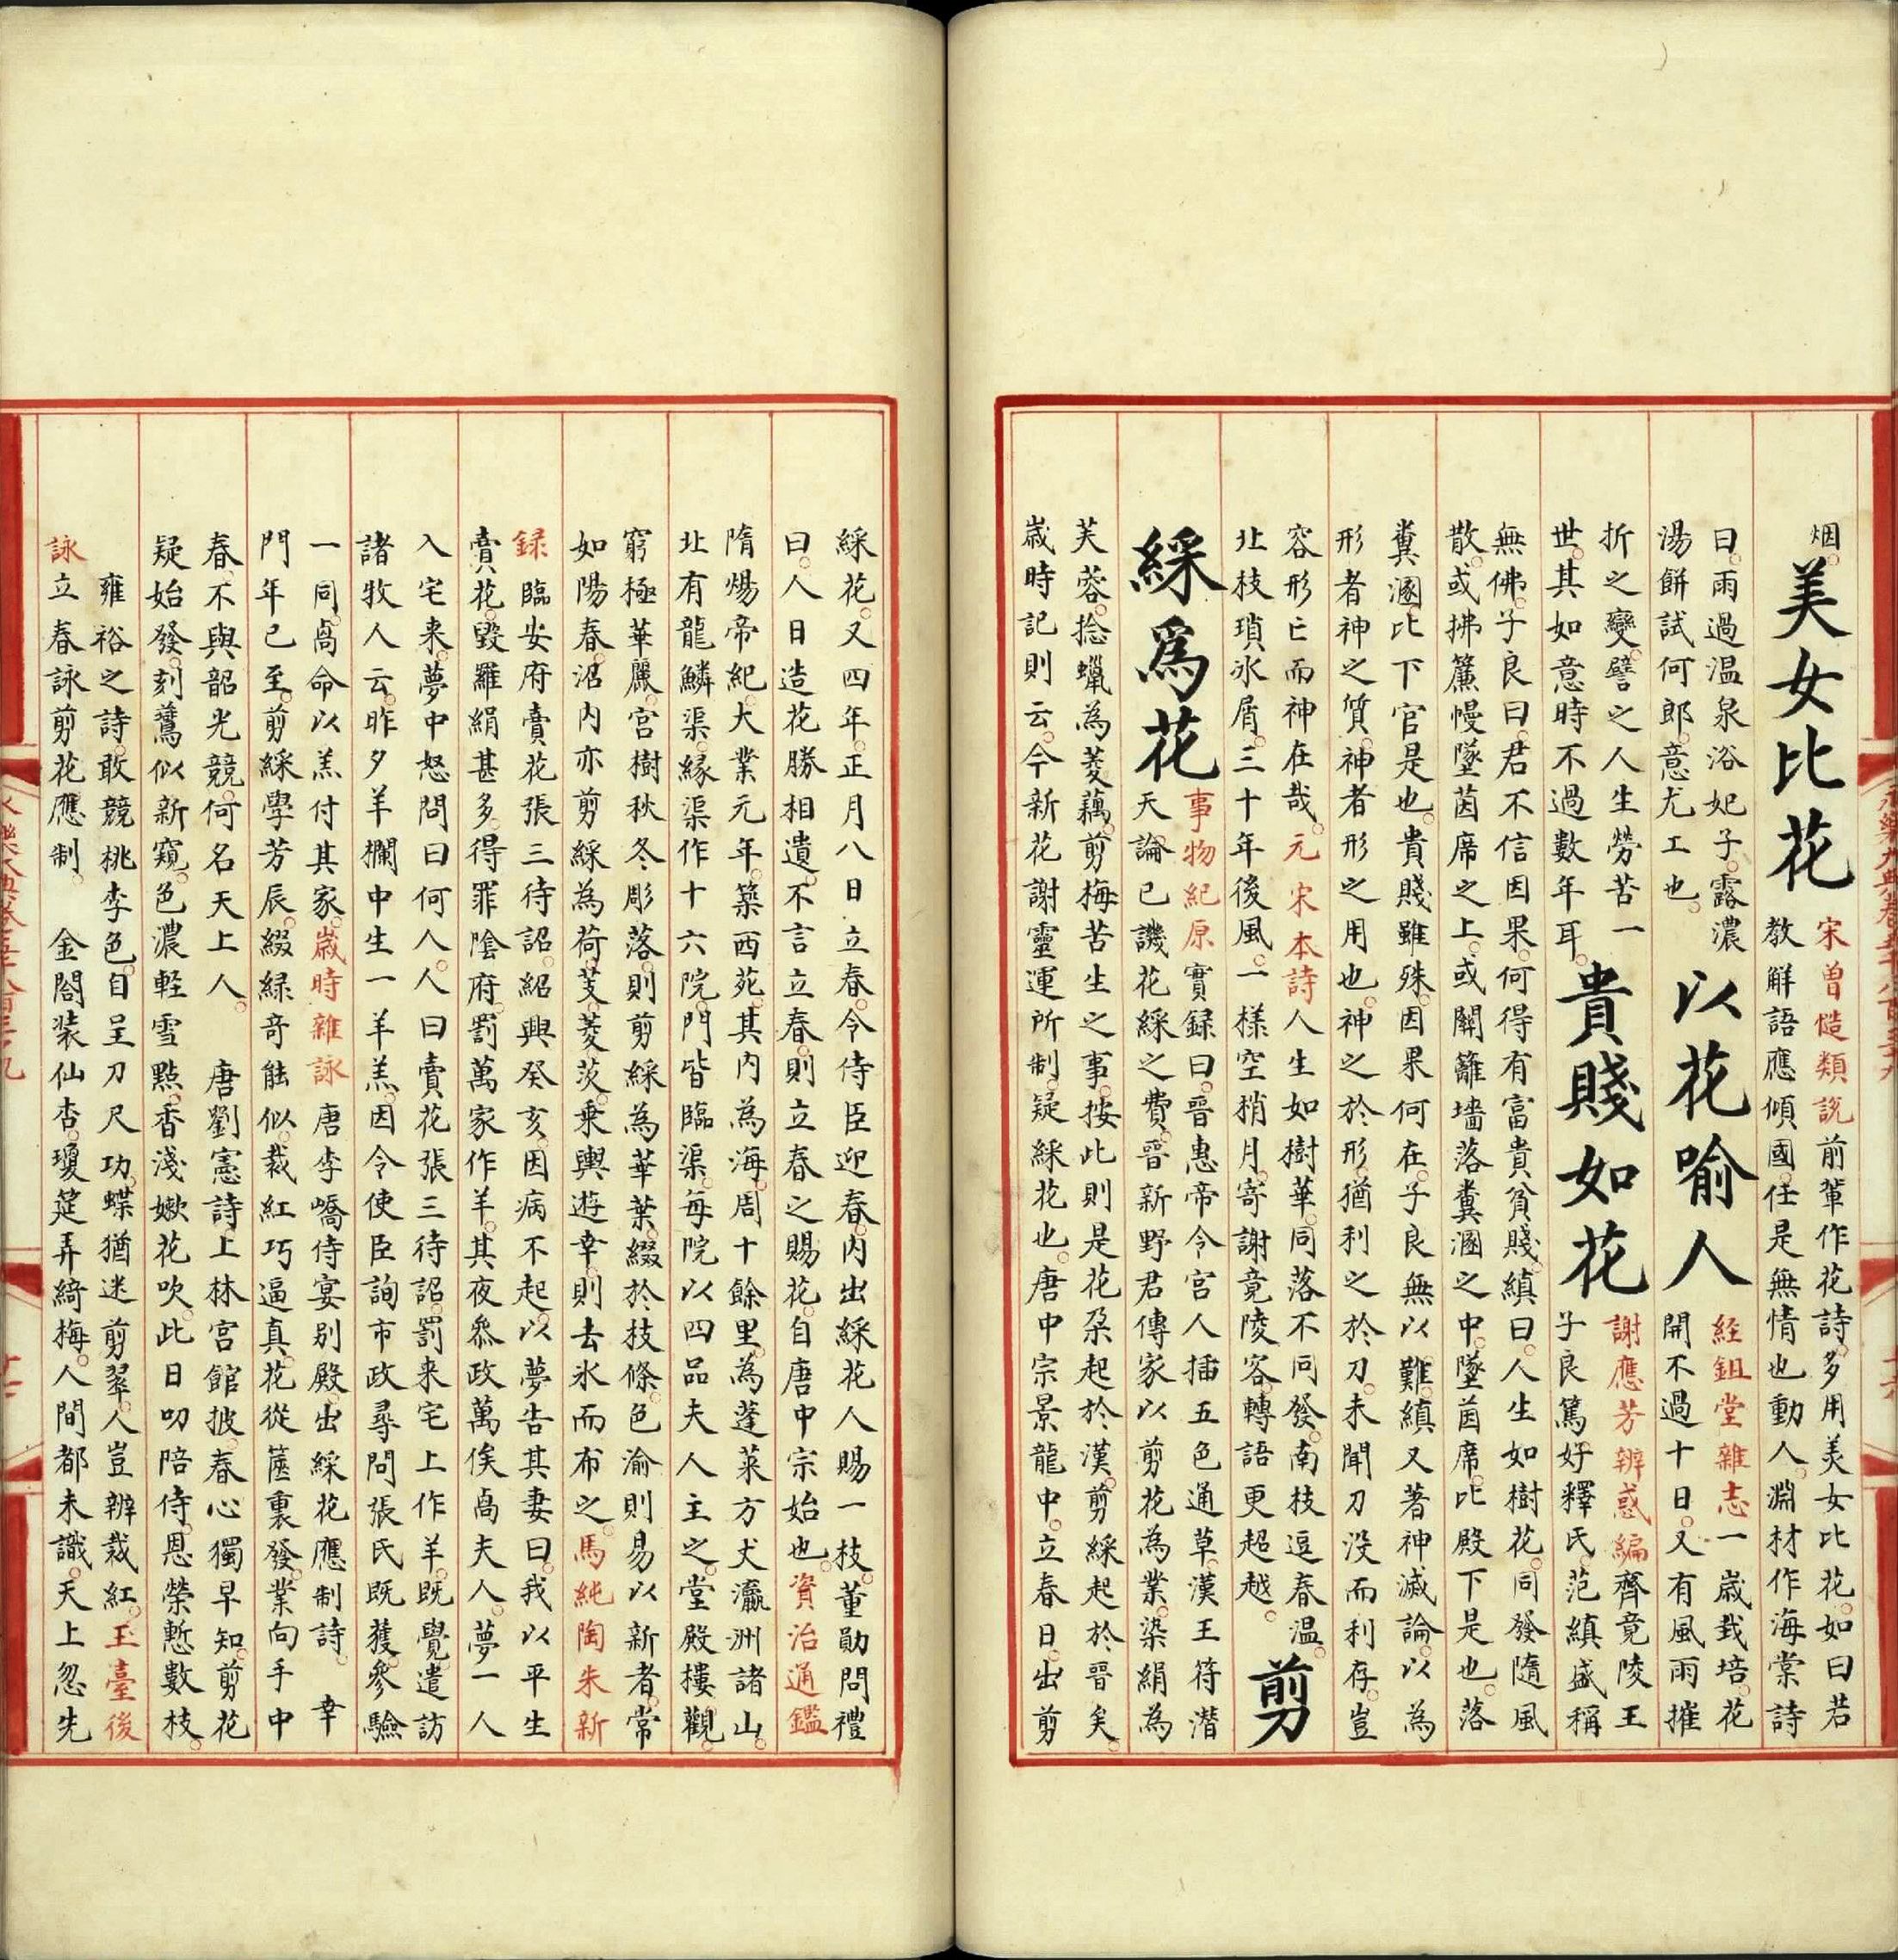 烟。
美女比花
宋曾慥類説前輩作花詩。多用美女比花。如曰若
教解語應傾國。任是無情也動人。淵材作海棠詩
曰。雨過温泉浴妃子。露濃
湯餅試何郎。意尤工也。
以花喻人
経鉏堂雜志一歳栽培。花
開不過十日。又有風雨摧
折之變。譬之人生勞苦一
世。其如意時不過數年耳。
貴賤如花
謝應芳辨惑編齊竟陵王
子良篤好釋氏。范縝盛稱
無佛。子良曰。君不信因果。何得有富貴貧賤。縝曰。人生如樹花。同發隨風
散。或拂簾幌墜茵席之上。或關籬墻落糞溷之中。墜茵席。此殿下是也。落
糞溷。此下官是也。貴賤雖殊。因果何在。子良無以難。縝又著神滅論。以為
形者神之質。神者形之用也。神之於形。猶利之於刀。未聞刀没而利存。豈
容形亡而神在哉。元宋本詩人生如樹華。同落不同發。南枝逗春温。
北枝瑣冰屑。三十年後風。一樣空梢月。寄謝竟陵客。轉語更超越。
剪
綵為花
事物紀原實録曰。晉惠帝令宮人插五色通草。漢王符潛
夫論已譏花綵之費。晉新野君傳家以剪花為業。染絹為
芙蓉。捻蠟為菱藕。剪梅苦生之事。按此則是花朶起於漢。剪綵起於晉矣。
歳時記則云。今新花謝靈運所制。疑綵花也。唐中宗景龍中。立春日。出剪
綵花。又四年。正月八日立春。令侍臣迎春。内出綵花人賜一枝。董勛問禮
曰。人日造花勝相遺。不言立春。則立春之賜花。自唐中宗始也。資治通鑑
隋煬帝紀。大業元年。築西苑。其内為海。周十餘里。為蓬萊方丈瀛洲諸山。
北有龍鱗渠。緣渠作十六院。門皆臨渠。每院以四品夫人主之。堂殿樓觀。
窮極華麗。宮樹秋冬彫落。則剪綵為華葉。綴於枝條。色渝則易以新者。常
如陽春。沼内亦剪綵為荷芰菱茨。乘輿遊幸。則去氷而布之。馬純陶朱新
録臨安府賣花張三待詔。紹興癸亥。因病不起。以夢告其妻曰。我以平生
賣花。毀羅絹甚多。得罪隂府。罰萬家作羊。其夜叅政萬俟卨夫人。夢一人
入宅来。夢中怒問曰何人。人曰賣花張三待詔。罰来宅上作羊。既覺。遣訪
諸牧人云。昨夕羊欄中生一羊羔。因令使臣詢市政尋問張氏。既獲。參驗
一同。卨命以羔付其家。歳時雜詠唐李嶠侍宴别殿。出綵花應制詩。幸
門年已至。剪綵學芳辰。綴緑竒能似。裁紅巧逼真。花從篋裏發。業向手中
春。不與韶光競。何名天上人。唐劉憲詩。上林宮館披。春心獨早知。剪花
疑始發。刻鷰似新窺。色濃輕雪點。香淺嫩花吹。此日叨陪侍。恩榮慙數枝。
雍裕之詩。敢競桃李色。自呈刀尺功。蝶猶迷剪翠。人豈辨裁紅。玉臺後
詠立春詠剪花應制。金閣装仙杏。瓊筵弄綺梅。人間都未識。天上忽先